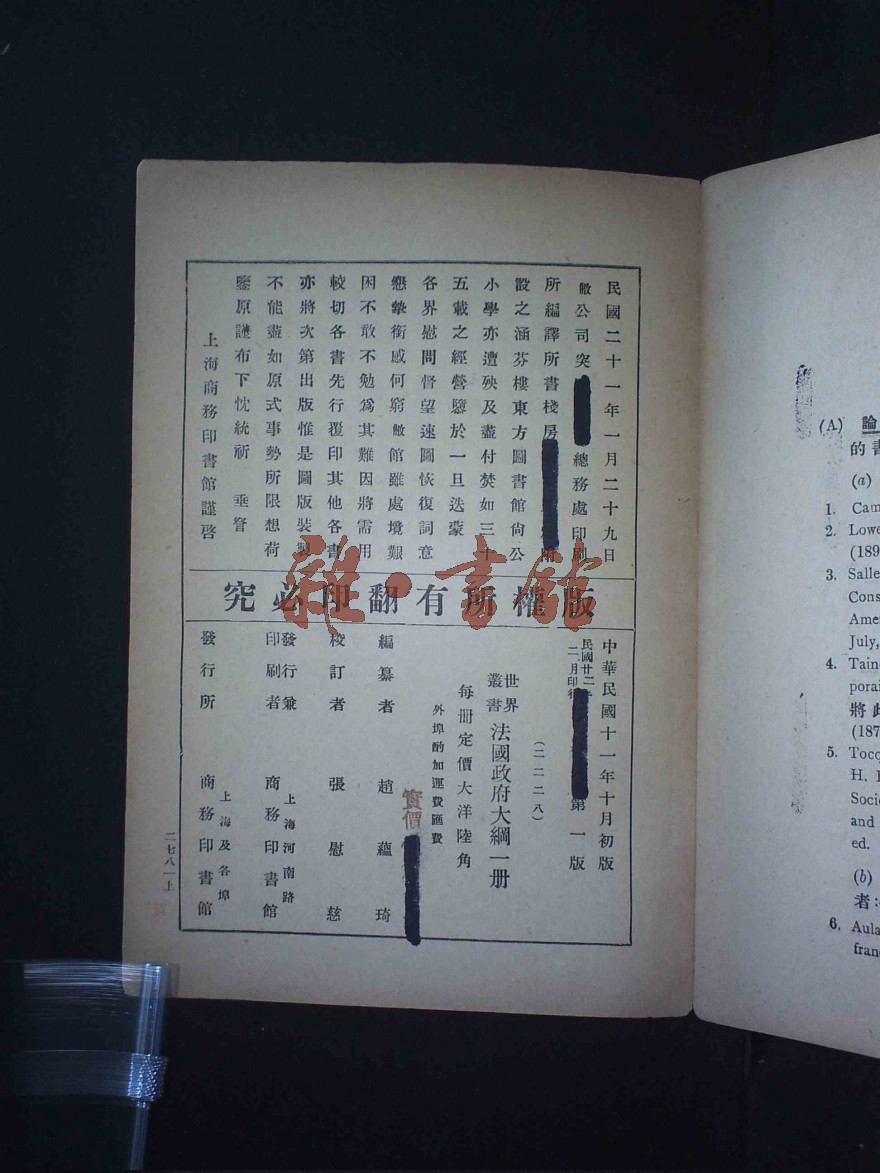 民國二十一年一月二十九日
敝公司突 總務處印刷
所編譯所書棧房 附
設之涵芬樓東方圖書館尙公
小學亦遭殃及盡付焚如三十
五載之經營隳於一旦迭蒙
各界慰問督望速圖恢復詞意
懇摯銜感何窮敝館雖處境艱
困不敢不勉爲其難因將需用
較切各書先行覆印其他各書
亦將次第出版惟是圖版裝製
不能盡如原式事勢所限想荷
鑒原謹布下忱統祈 垂詧
上海商務印書館謹啓
版權所有翻印必究
中華民國十一年十月初版
民國廿二年
二月印行 第一版
(二二二八)
世界
叢書 法國政府大綱一册
每册定價大洋陸角
外埠酌加運費匯費
實價
編纂者 趙蘊琦
校訂者 張慰慈
發行兼
印刷者 上海河南路
商務印書館
發行所 上海及各埠
商務印書館
二七八一上
雜·書館
(A) 論
的書
(a)
1. Cam
2. Lowe
(189
3. Salle
Cons
Ame
July,
4. Tain
porai
將此
(187
5. Tocq
H. I
Socie
and
ed.
(b)
者:
6. Aula
fran